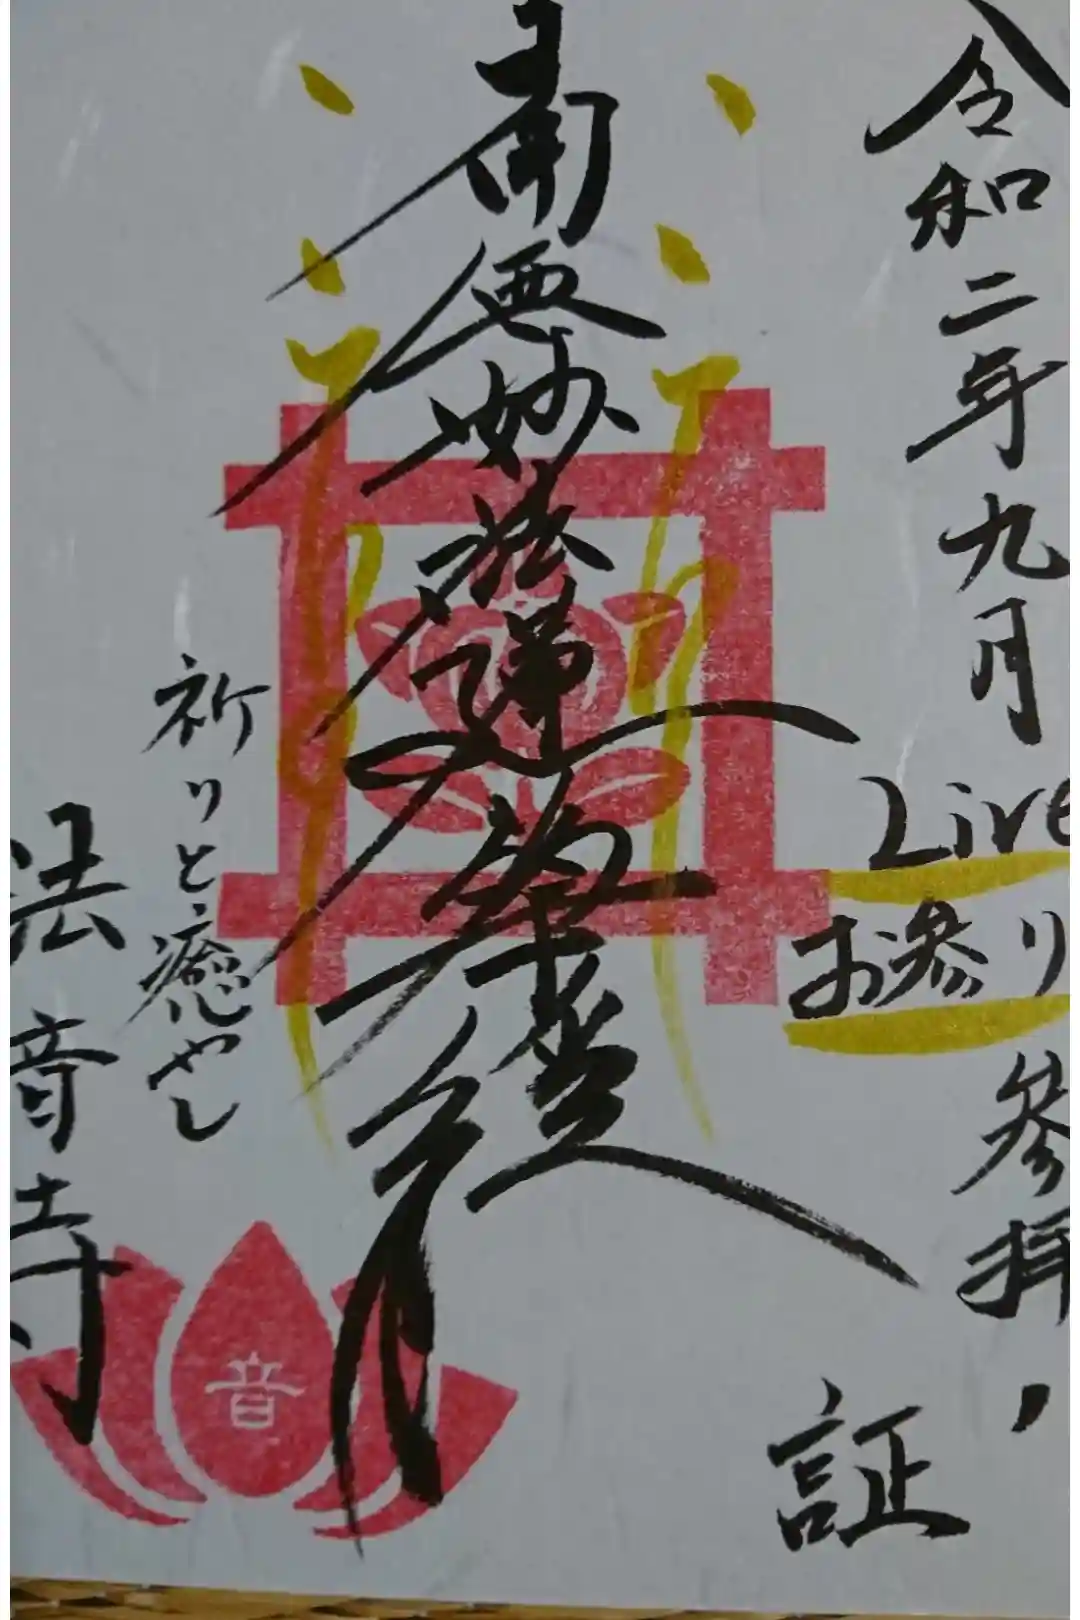 令和二年九月
Live
お参り
参拝
証
南無妙法蓮華経
祈りと癒やし
法音寺
音